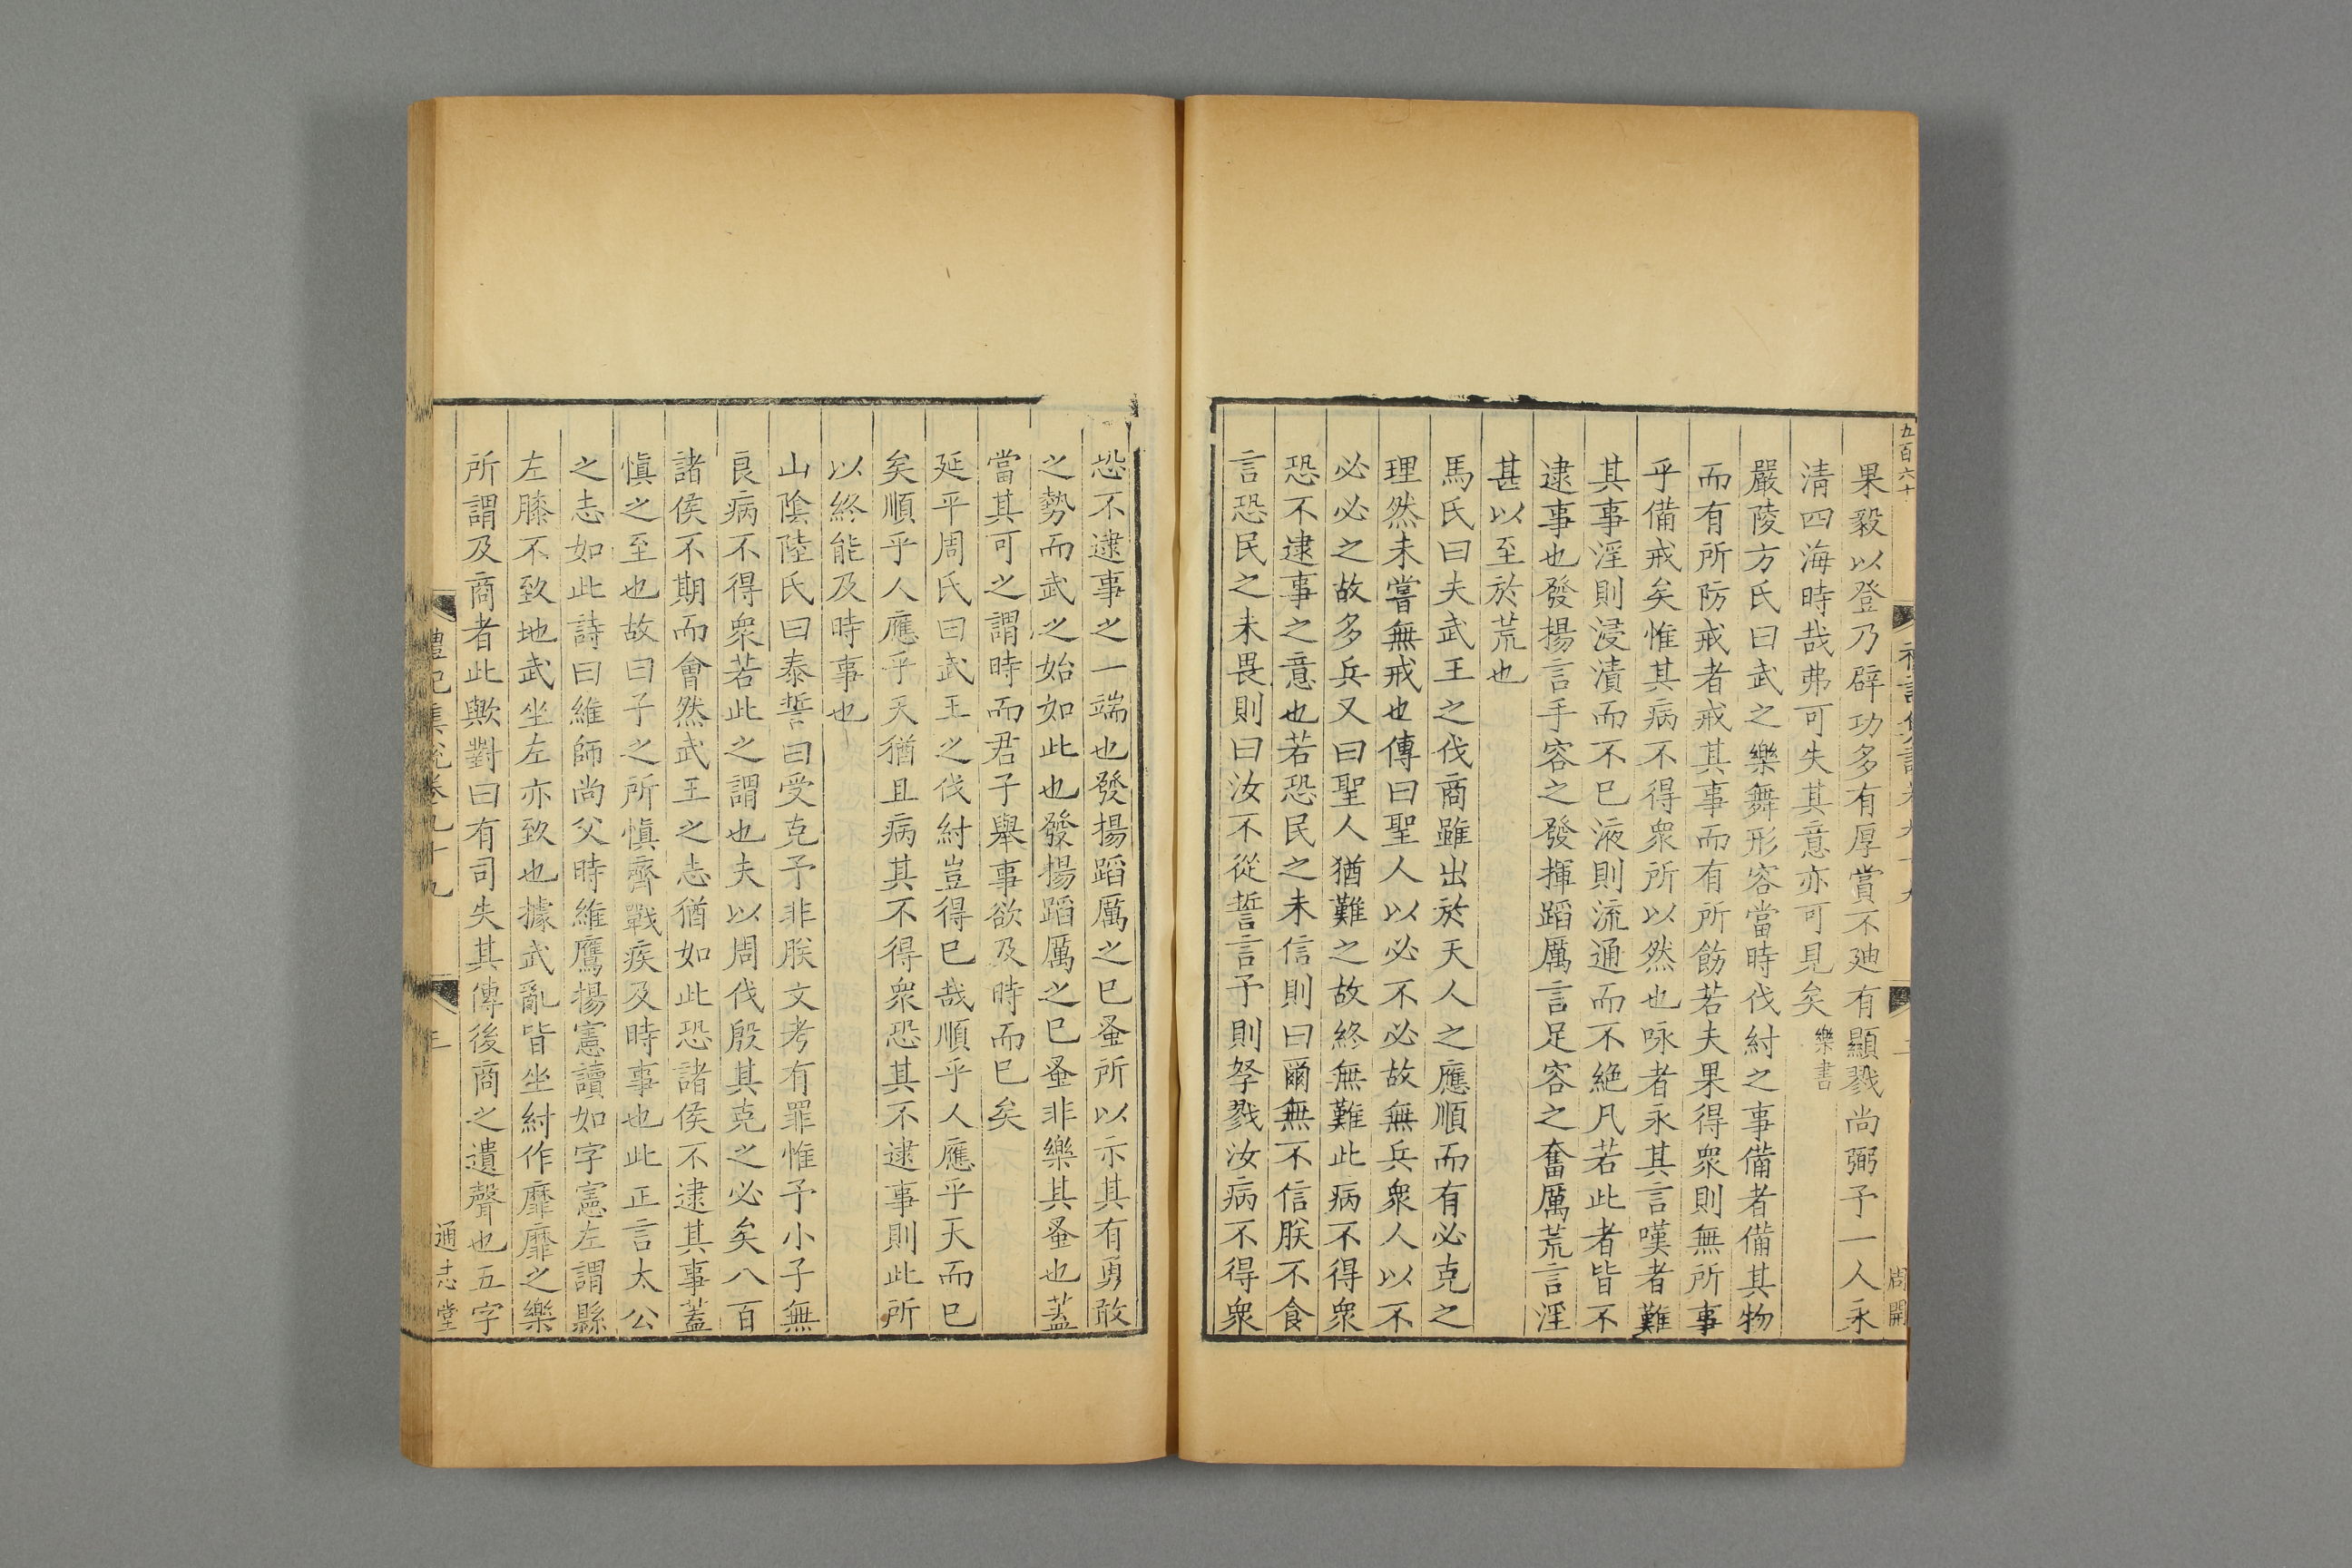 五百六十
周開
果毅以登乃辟功多有厚賞不廸有顯戮尚弼予一人永
淸四海時哉弗可失其意亦可見矣樂書
嚴陵方氏曰武之樂舞形容當時伐紂之事備者備其物
而有所防戒者戒其事而有所飭若夫果得衆則無所事
乎備戒矣惟其病不得衆所以然也咏者永其言嘆者難
其事淫則浸漬而不已液則流通而不絶凡若此者皆不
逮事也發揚言手容之發揮蹈厲言足容之奮厲荒言淫
甚以至於荒也
馬氏曰夫武王之伐商雖出於天人之應順而有必克之
理然未嘗無戒也傳曰聖人以必不必故無兵衆人以不
必必之故多兵又曰聖人猶難之故終無難此病不得衆
恐不逮事之意也若恐民之未信則曰爾無不信朕不食
言恐民之未畏則曰汝不從誓言予則孥戮汝病不得衆
恐不逮事之一端也發揚蹈厲之已蚤所以示其有勇敢
之勢而武之始如此也發揚蹈厲之已蚤非樂其蚤也蓋
當其可之謂時而君子舉事欲及時而已矣
延平周氏曰武王之伐紂豈得已哉順乎人應乎天而已
矣順乎人應乎天猶且病其不得衆恐其不逮事則此所
以終能及時事也
山陰陸氏曰泰誓曰受克予非朕文考有罪惟予小子無
良病不得衆若此之謂也夫以周伐殷其克之必矣八百
諸侯不期而會然武王之志猶如此恐諸侯不逮其事蓋
愼之至也故曰子之所愼齊戰疾及時事也此正言太公
之志如此詩曰維師尚父時維鷹揚憲讀如字憲左謂縣
左膝不致地武坐左亦致也據武亂皆坐紂作靡靡之樂
所謂及商者此歟對曰有司失其傳後商之遺聲也五字
禮記集說卷九十九
通志堂